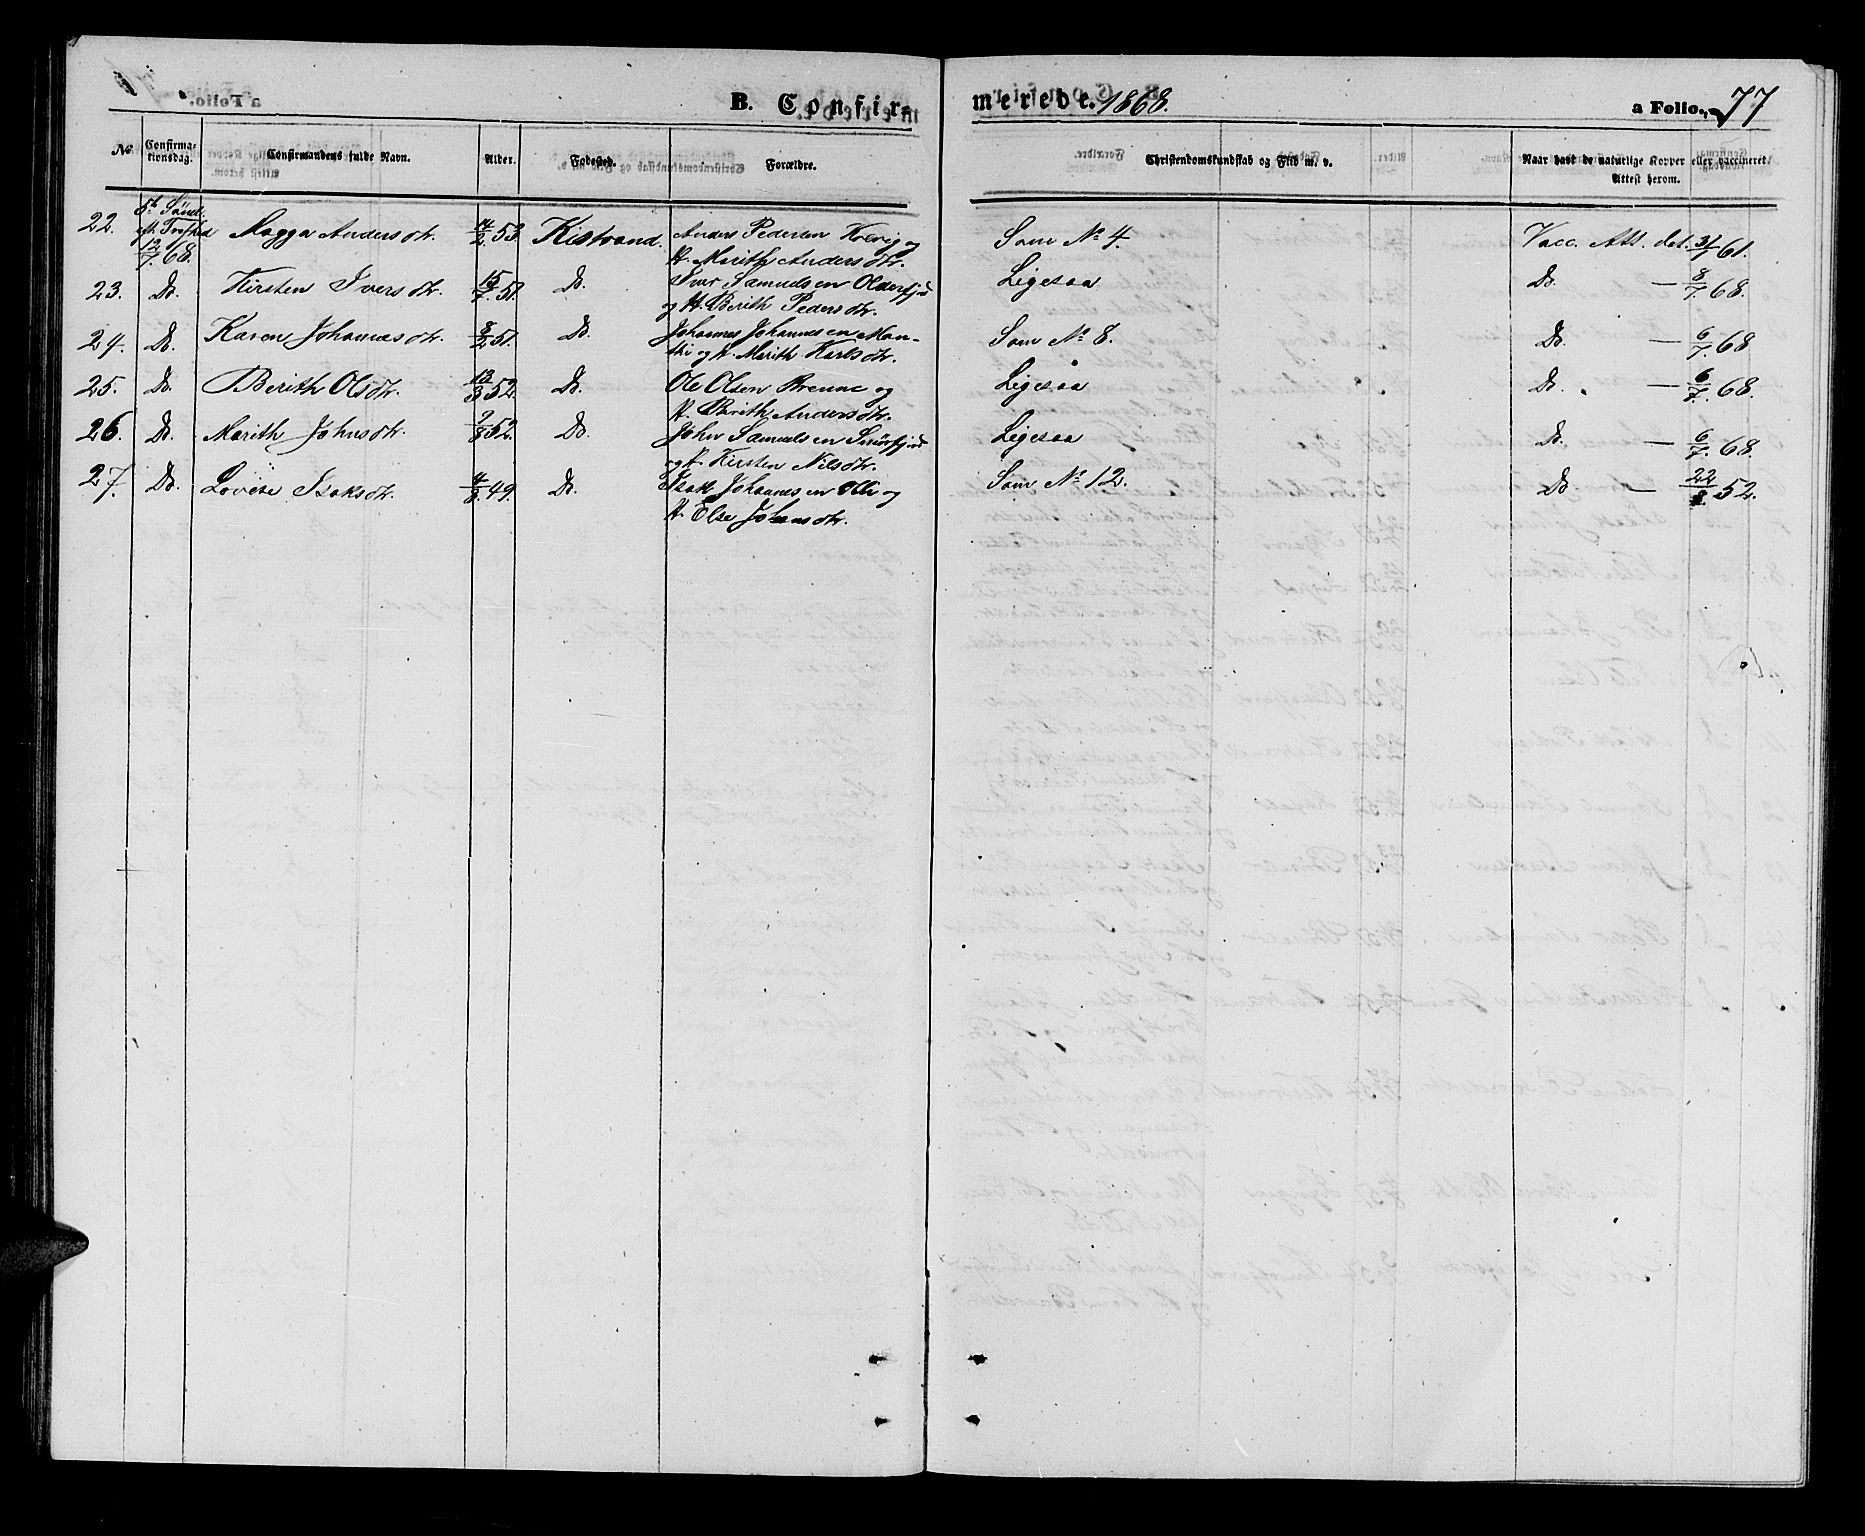 B. Confirmerede. 1868. a Folio. 77
No. Confirmationsdag. Confirmandens fulde Navn. Alder. Fødested. Forældre. Christendomskundskab og Flid m. v. Naar havt de naturlige Kopper eller vaccineret Attest herom.
22. 5te Sønd. eft. Trefhed 12/7 68. Magga Andersdtr. 14/2 53 Kistrand. Anders Pedersen Kolvig og
H. Marith Andersdtr. Som No 4. Vacc. Att. dat. 31/7 61.
23. Do. Kirsten Iversdtr. 15/7 51. Do. Iver Samuelsen Olderfjrd
og H. Berith Pedersdtr. Ligesaa Do — 8/7 68.
24. Do. Karen Johannesdtr. 8/2 51. Do. Johannes Johannesen Man-
thi og H. Marith Karlsdtr. Som No 8. Do. — 6/7 68
25. Do. Berith Olsdtr. 13/3 52. Do. Ole Olsen Brenne og
H. Berith Andersdtr. Ligesaa Do. — 6/7 68.
26. Do. Marith Johnsdtr. 9/8 52. Do. John Samuelsen Smörfjrd
og H. Kirsten Nilsdtr. Ligesaa Do. — 6/7 68.
27. Do. Lovise Isaksdtr. 4/8 49. Do. Isak Johannesen Olli og
H. Else Johansdtr. Som No 12. Do. — 22/8 52.